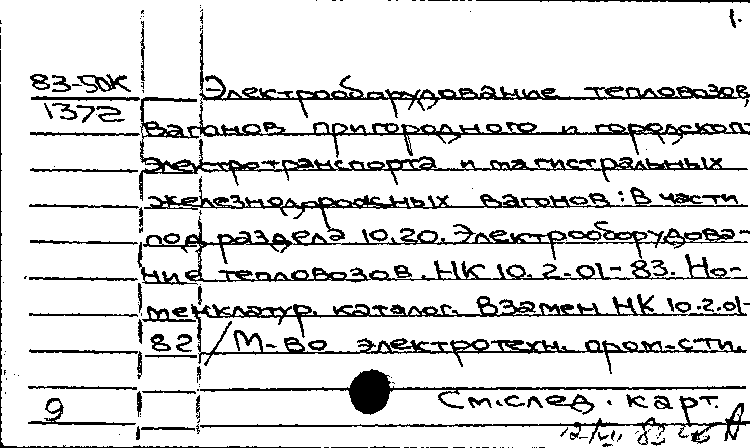 1.
83-50К Электрооборудование тепловозов,
1372
вагонов пригородного и городского
электротранспорта и магистральных
железнодорожных вагонов: В части
подраздела 10.20. Электрооборудова-
ние тепловозов. НК 10.2.01-83. Но-
менклатур. каталог. Взамен НК 10.2.01-
82 / М-во электротехн. пром-сти.
9 См. след. карт.
83